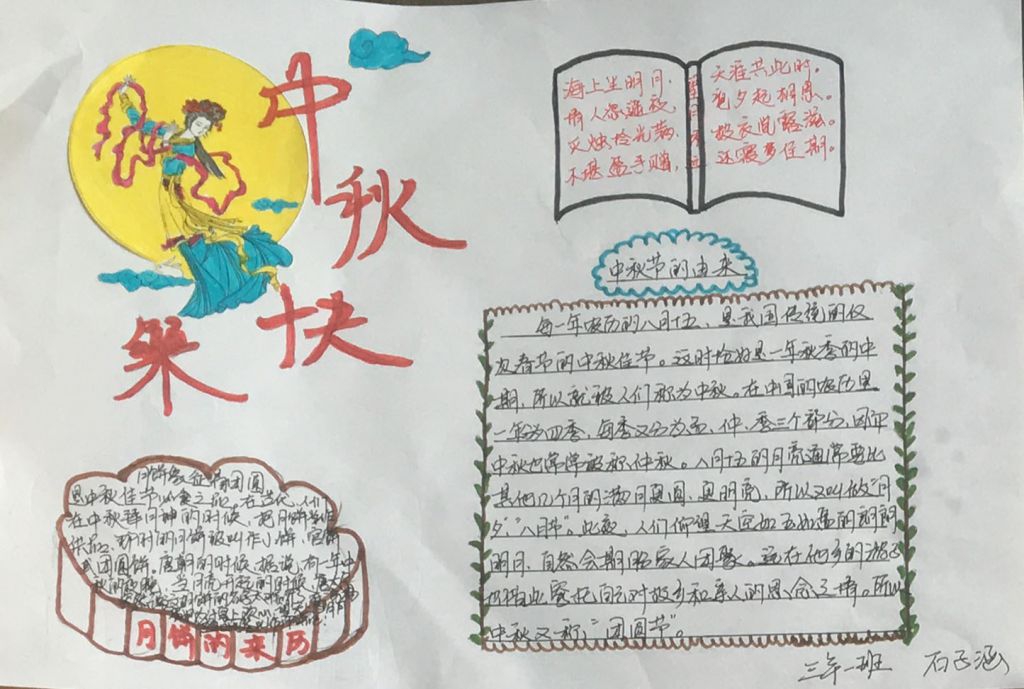 中秋
快
乐
海上生明月,
天涯共此时。
情人怨遥夜,
竟夕起相思。
灭烛怜光满,
披衣觉露滋。
不堪盈手赠,
还寝梦佳期。
中秋节的由来
每一年农历的八月十五、是我国传统的仅
次春节的中秋佳节。这时恰好是一年秋季的中
期,所以就被人们称为中秋。在中国的农历里
一年分为四季,每季又分为孟、仲、季三个部分,因而
中秋也常常被称仲秋。八月十五的月亮通常要比
其他几个月的满月更圆,更明亮,所以又叫做"月
夕","八月节"。此夜,人们仰望天空如玉如盘的朗朗
明月,自然会期盼家人团聚。远在他乡的游子
也借此寄托自己对故乡和亲人的思念之情。所以
中秋又称"团圆节"。
月饼象征着团圆
是中秋佳节必食之物,在古代,人们
在中秋拜月神的时候,把月饼当作
供品,
月饼被叫作小饼,宫饼
或团圆饼。唐朝的时候,据说,有一年中
秋的
月饼的来历
三年一班 石子涵